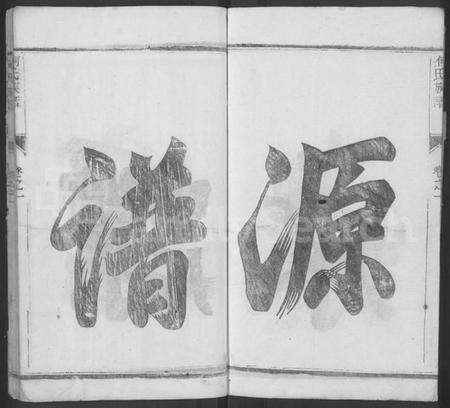 何氏族譜
卷之一
源
清
何氏族譜
卷之一